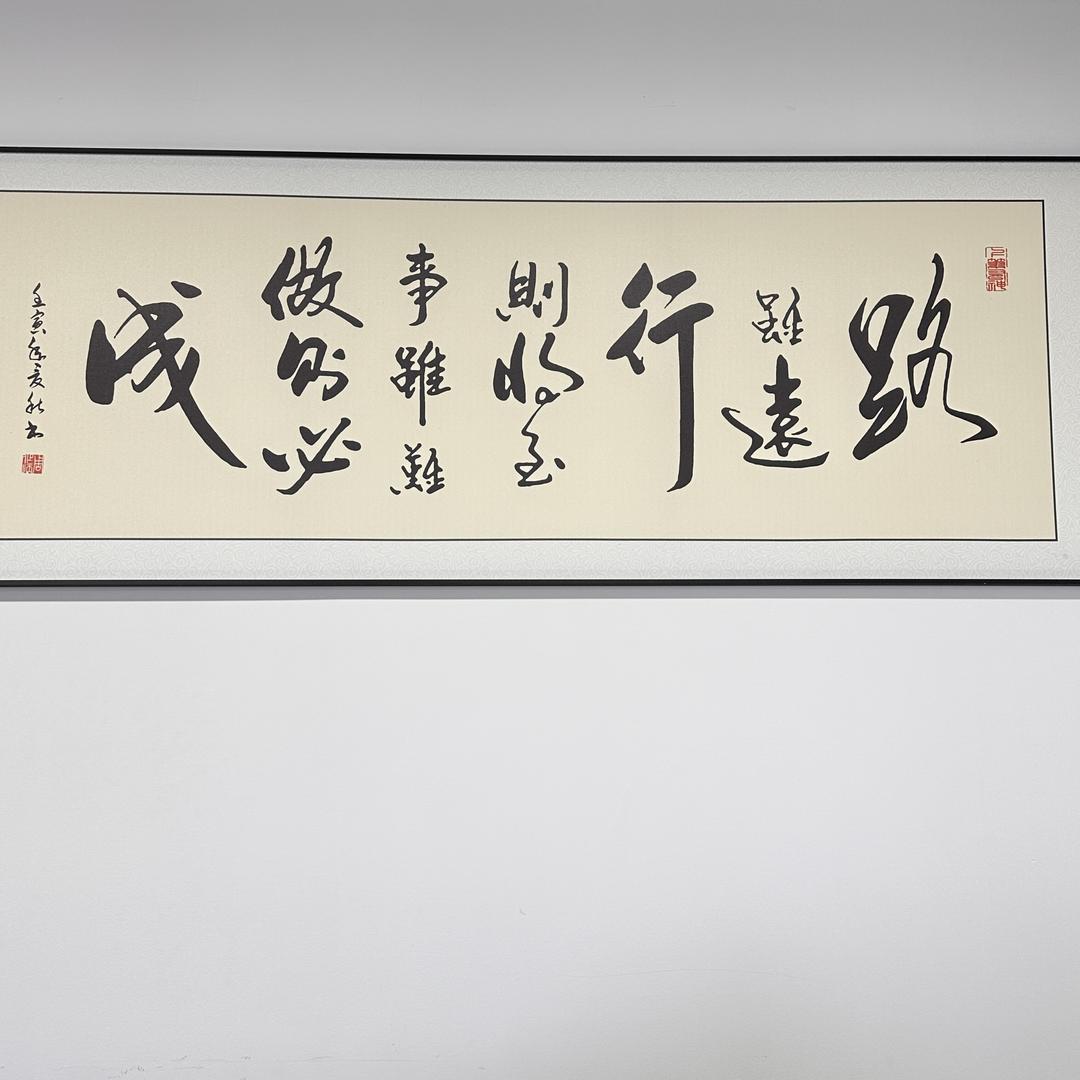 路
雖遠
行
則將至
事雖難
做则必
成
壬寅年秋书